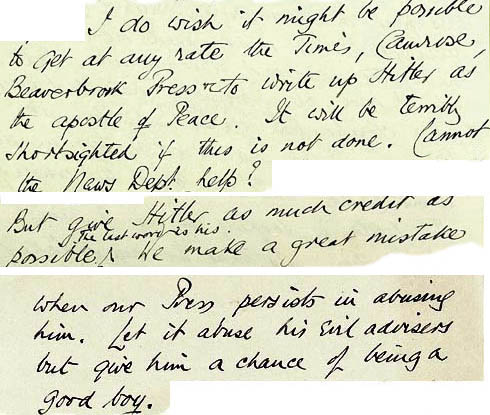 I do wish it might be possible
to get at any rate the Times, Camrose,
Beaverbrook Press etc to write up Hitler as
the apostle of Peace. It will be terribly
shortsighted if this is not done. Cannot
the News Dept. help?
But give Hitler as much credit as
The last word is his.
possible. We make a great mistake
when our Press persists in abusing
him. Let it abuse his evil advisers
but give him a chance of being a
good boy.